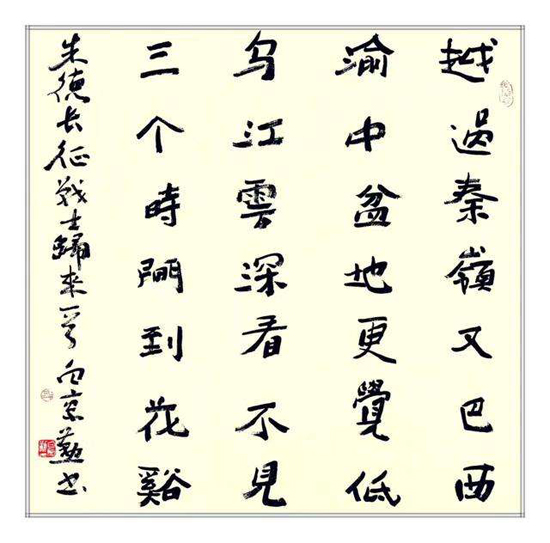 越過秦嶺又巴西
渝中盆地更覺低
乌江雲深看不見
三个時間到花谿
朱德长征戰士歸來一首 书